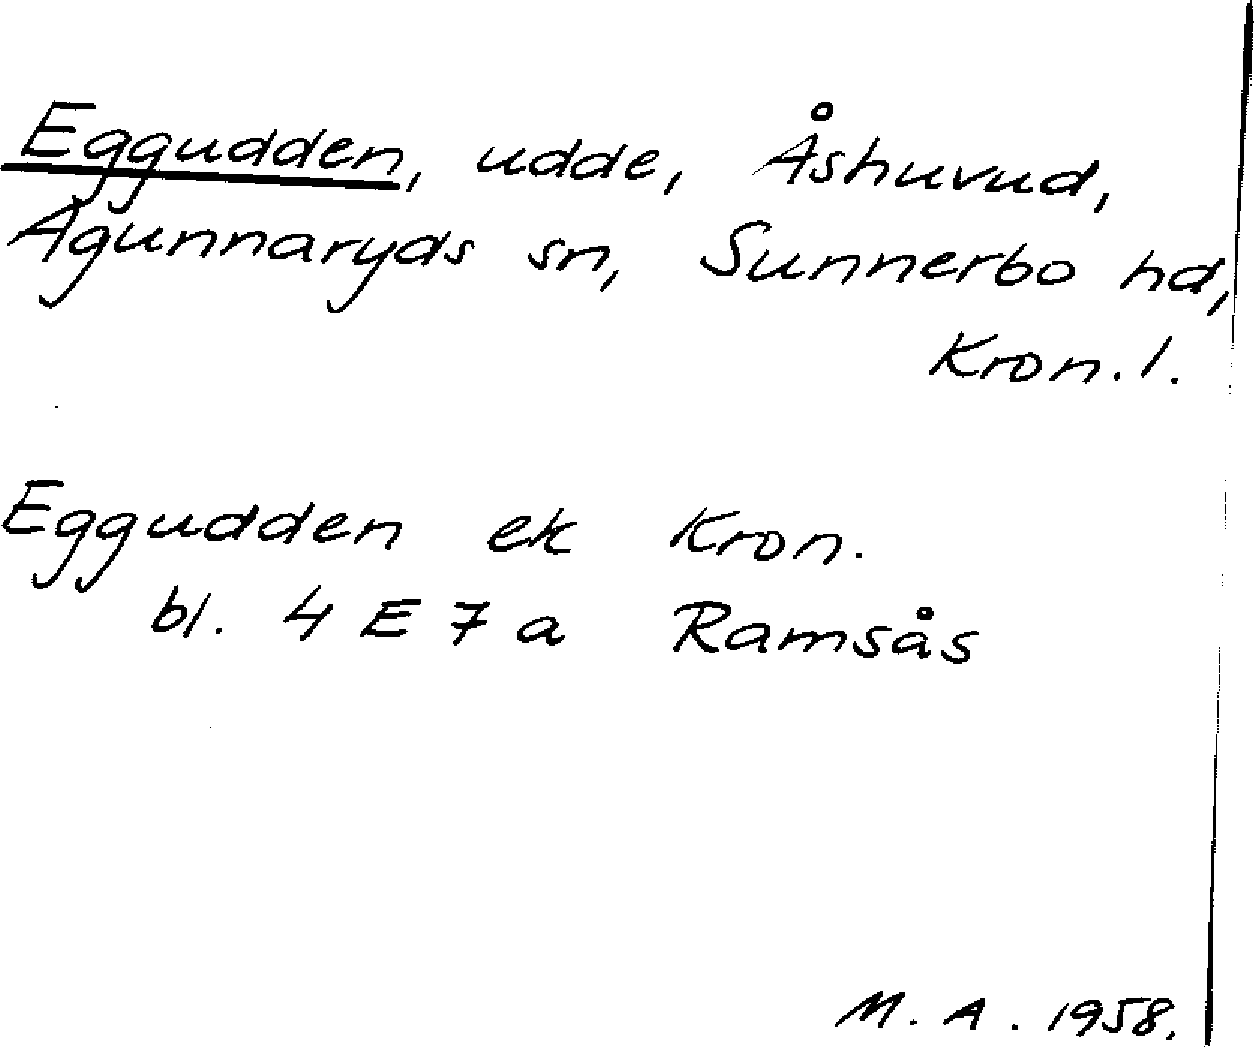 Eggudden, udde, Åshuvud,
Agunnaryds sn, Sunnerbo hd,
Kron. l.
Eggudden ek Kron.
bl. 4 E 7 a Ramsås
M. A. 1958.